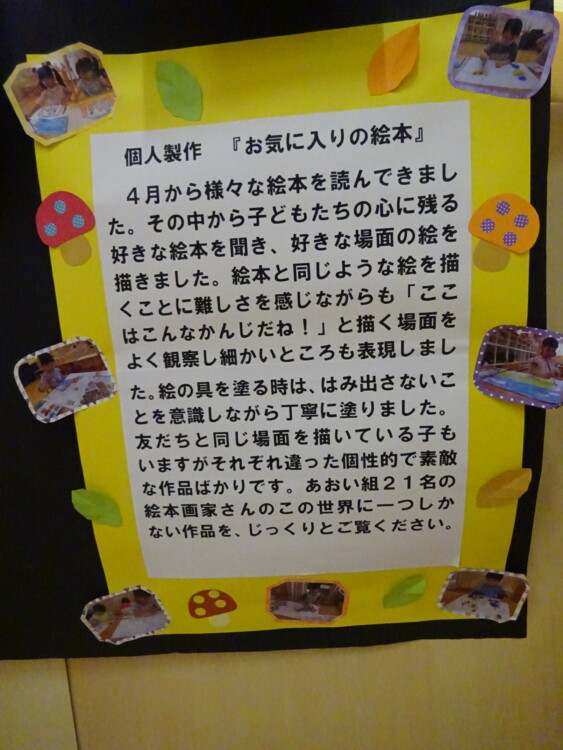 個人製作 『お気に入りの絵本』
4月から様々な絵本を読んできまし
た。その中から子どもたちの心に残る
好きな絵本を聞き、好きな場面の絵を
描きました。絵本と同じような絵を描
くことに難しさを感じながらも「ここ
はこんなかんじだね！」と描く場面を
よく観察し細かいところも表現しまし
た。絵の具を塗る時は、はみ出さないこ
とを意識しながら丁寧に塗りました。
友だちと同じ場面を描いている子も
いますがそれぞれ違った個性的で素敵
な作品ばかりです。あおい組２１名の
絵本画家さんのこの世界に一つしか
ない作品を、じっくりとご覧ください。